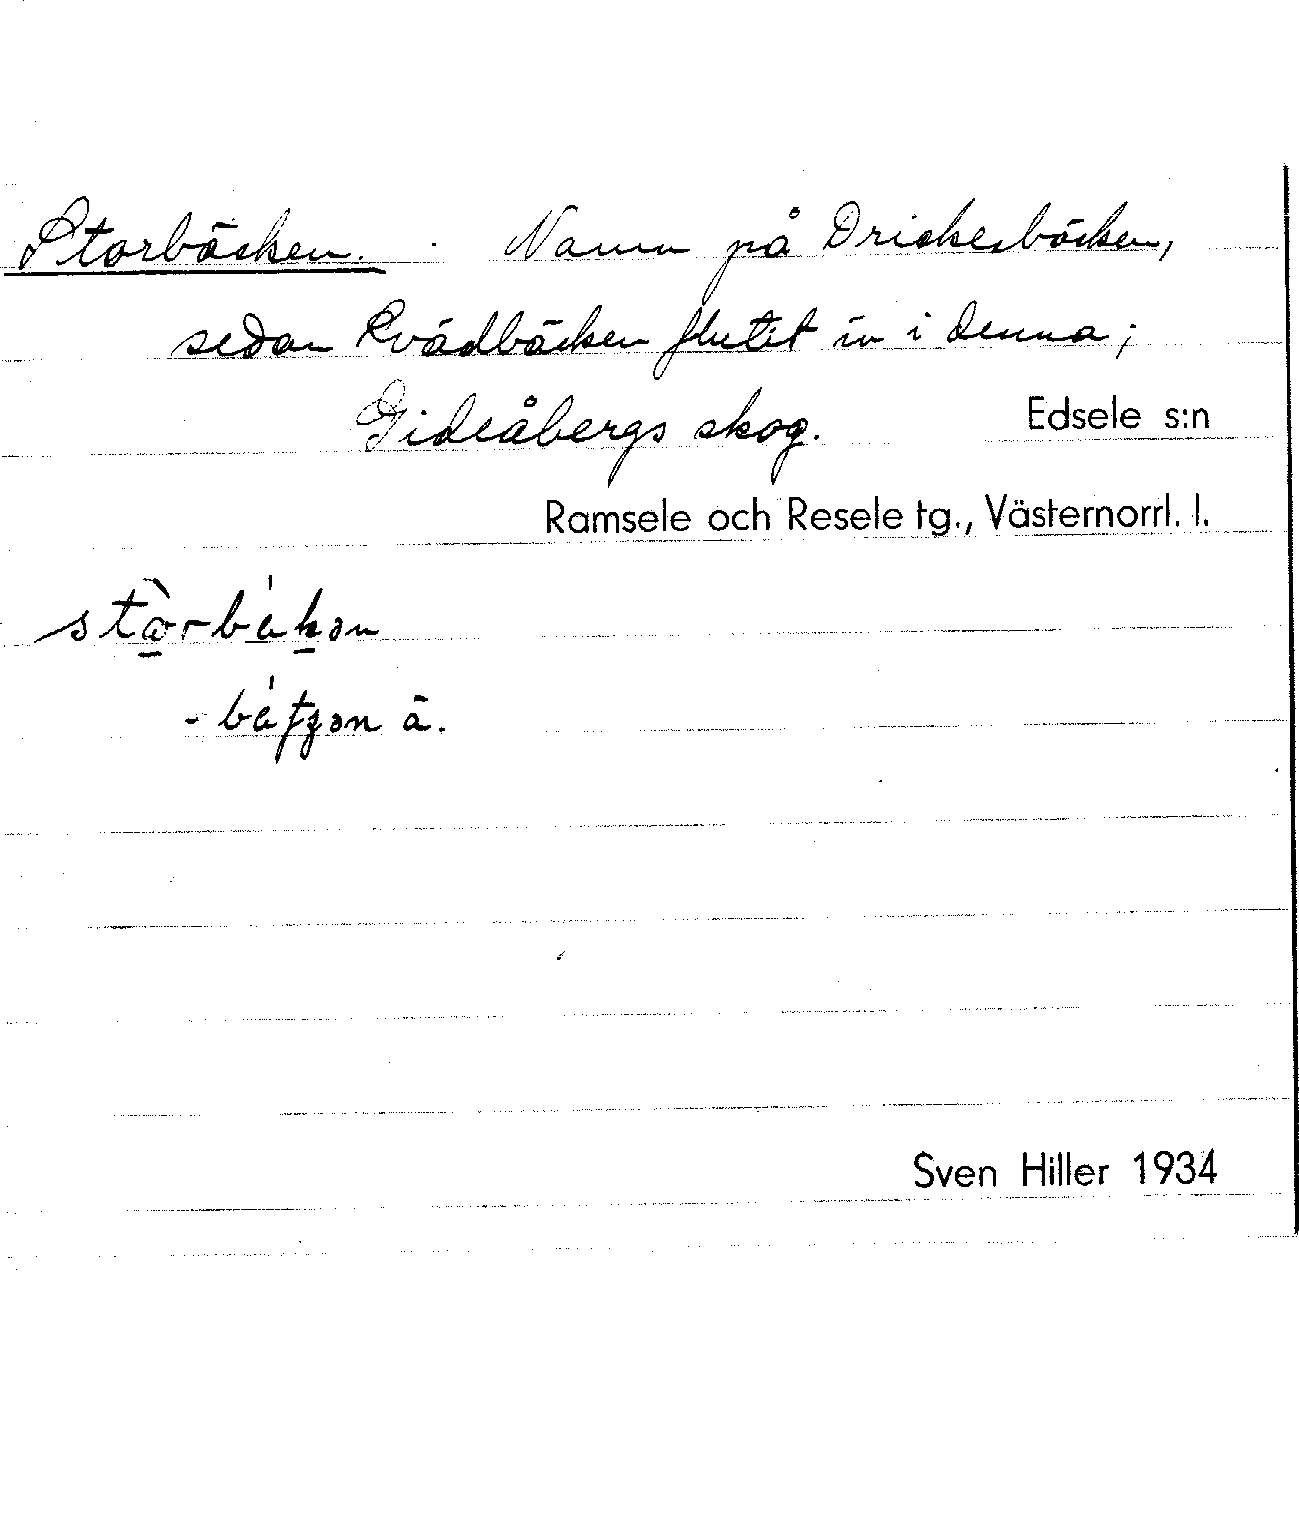 Storbäcken. Namn på Drickesbäcken,
sedan Kvädbäcken flutit in i denna;
Gideåbergs skog. Edsele s:n
Ramsele och Resele tg., Västernorrl. l.
Sven Hiller 1934